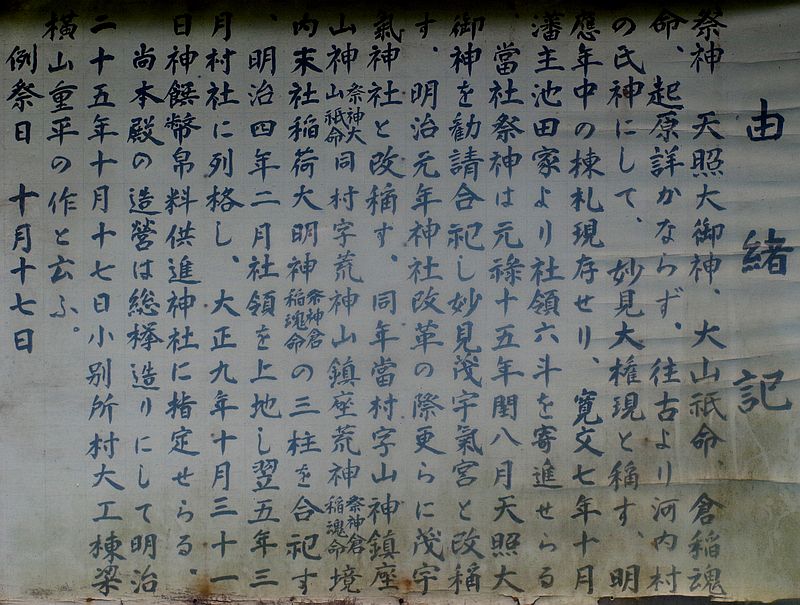 由緒記
祭神　天照大御神、大山祇命　倉稲魂
命、起原詳かならず、往古より河内村
の氏神にして、妙見大権現と稱す、明
應年中の棟札現存せり、寛文七年十月
藩主池田家より社領六斗を寄進せらる
、當社祭神は元祿十五年閏八月天照大
御神を勧請合祀し妙見茂宇氣宮と改稱
す、明治元年神社改革の際更らに茂宇
氣神社と改稱す、同年當村字山神鎮座
山神祭神大山祇命同村字荒神山鎮座荒神祭神倉稲魂命境
内末社稲荷大明神祭神倉稲魂命の三柱を合祀す
、明治四年二月社領を上地し翌五年三
月村社に列格し、大正九年十月三十一
日神饌幣帛料供進神社に指定せらる。
尚本殿の造營は総欅造りにして明治
二十五年十月十七日小別所村大工棟梁
横山重平の作と云ふ。
例祭日　十月十七日